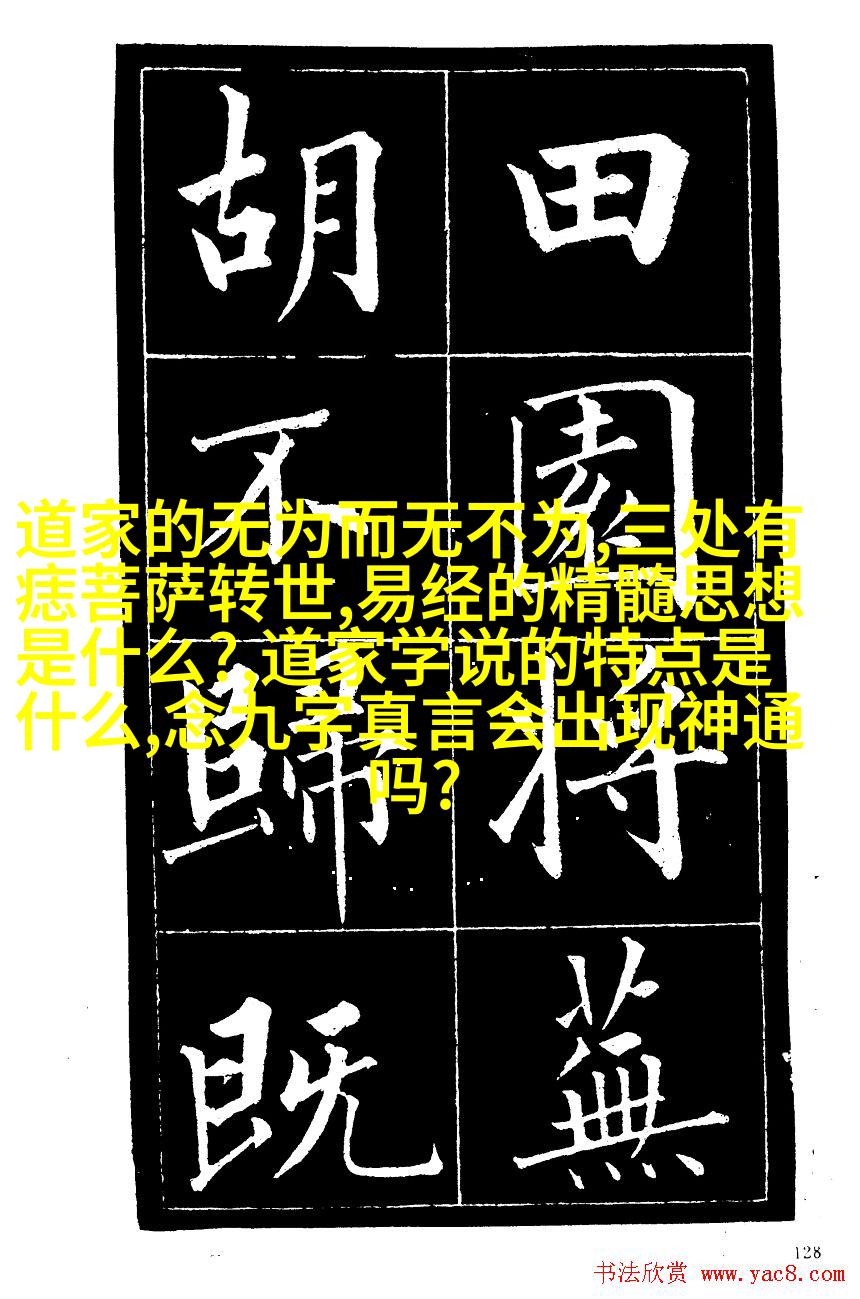 田園将蕪
胡不歸既
道家的无为而无不为,三处有
痣菩萨转世,易经的精髓思想
是什么?,道家学说的特点是
什么,念九字真言会出现神通
吗?
128
书法欣赏 www.yac8.com